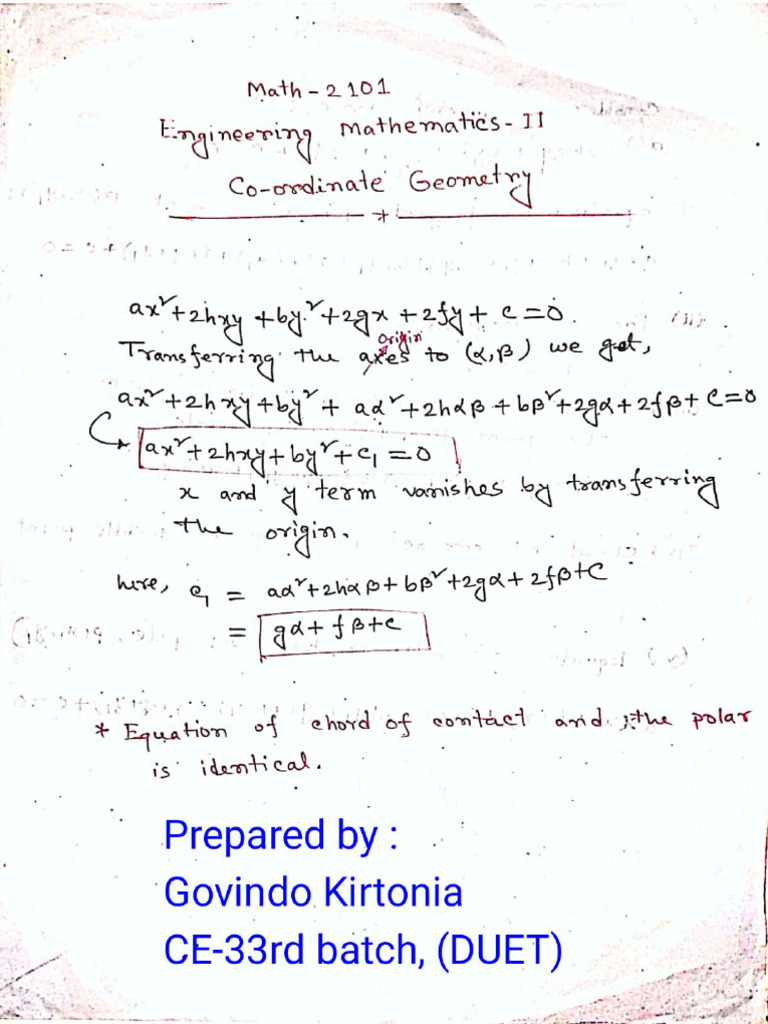 Math-2101
Engineering Mathematics-II
Co-ordinate Geometry
ax²+2hxy+by²+2gx+2fy+c=0.
origin
Transferring the axes to (α,β) we get,
ax²+2hxy+by²+aα²+2hαβ+bβ²+2gα+2fβ+c=0
ax²+2hxy+by²+c₁=0
x and y term vanishes by transferring
the origin.
here, c₁ = aα²+2hαβ+bβ²+2gα+2fβ+c
= gα+fβ+c
* Equation of chord of contact and the polar
is identical.
Prepared by :
Govindo Kirtonia
CE-33rd batch, (DUET)